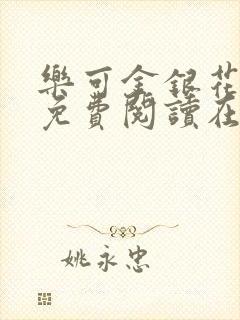 樂可金銀花
免費閱讀在
姚永忠